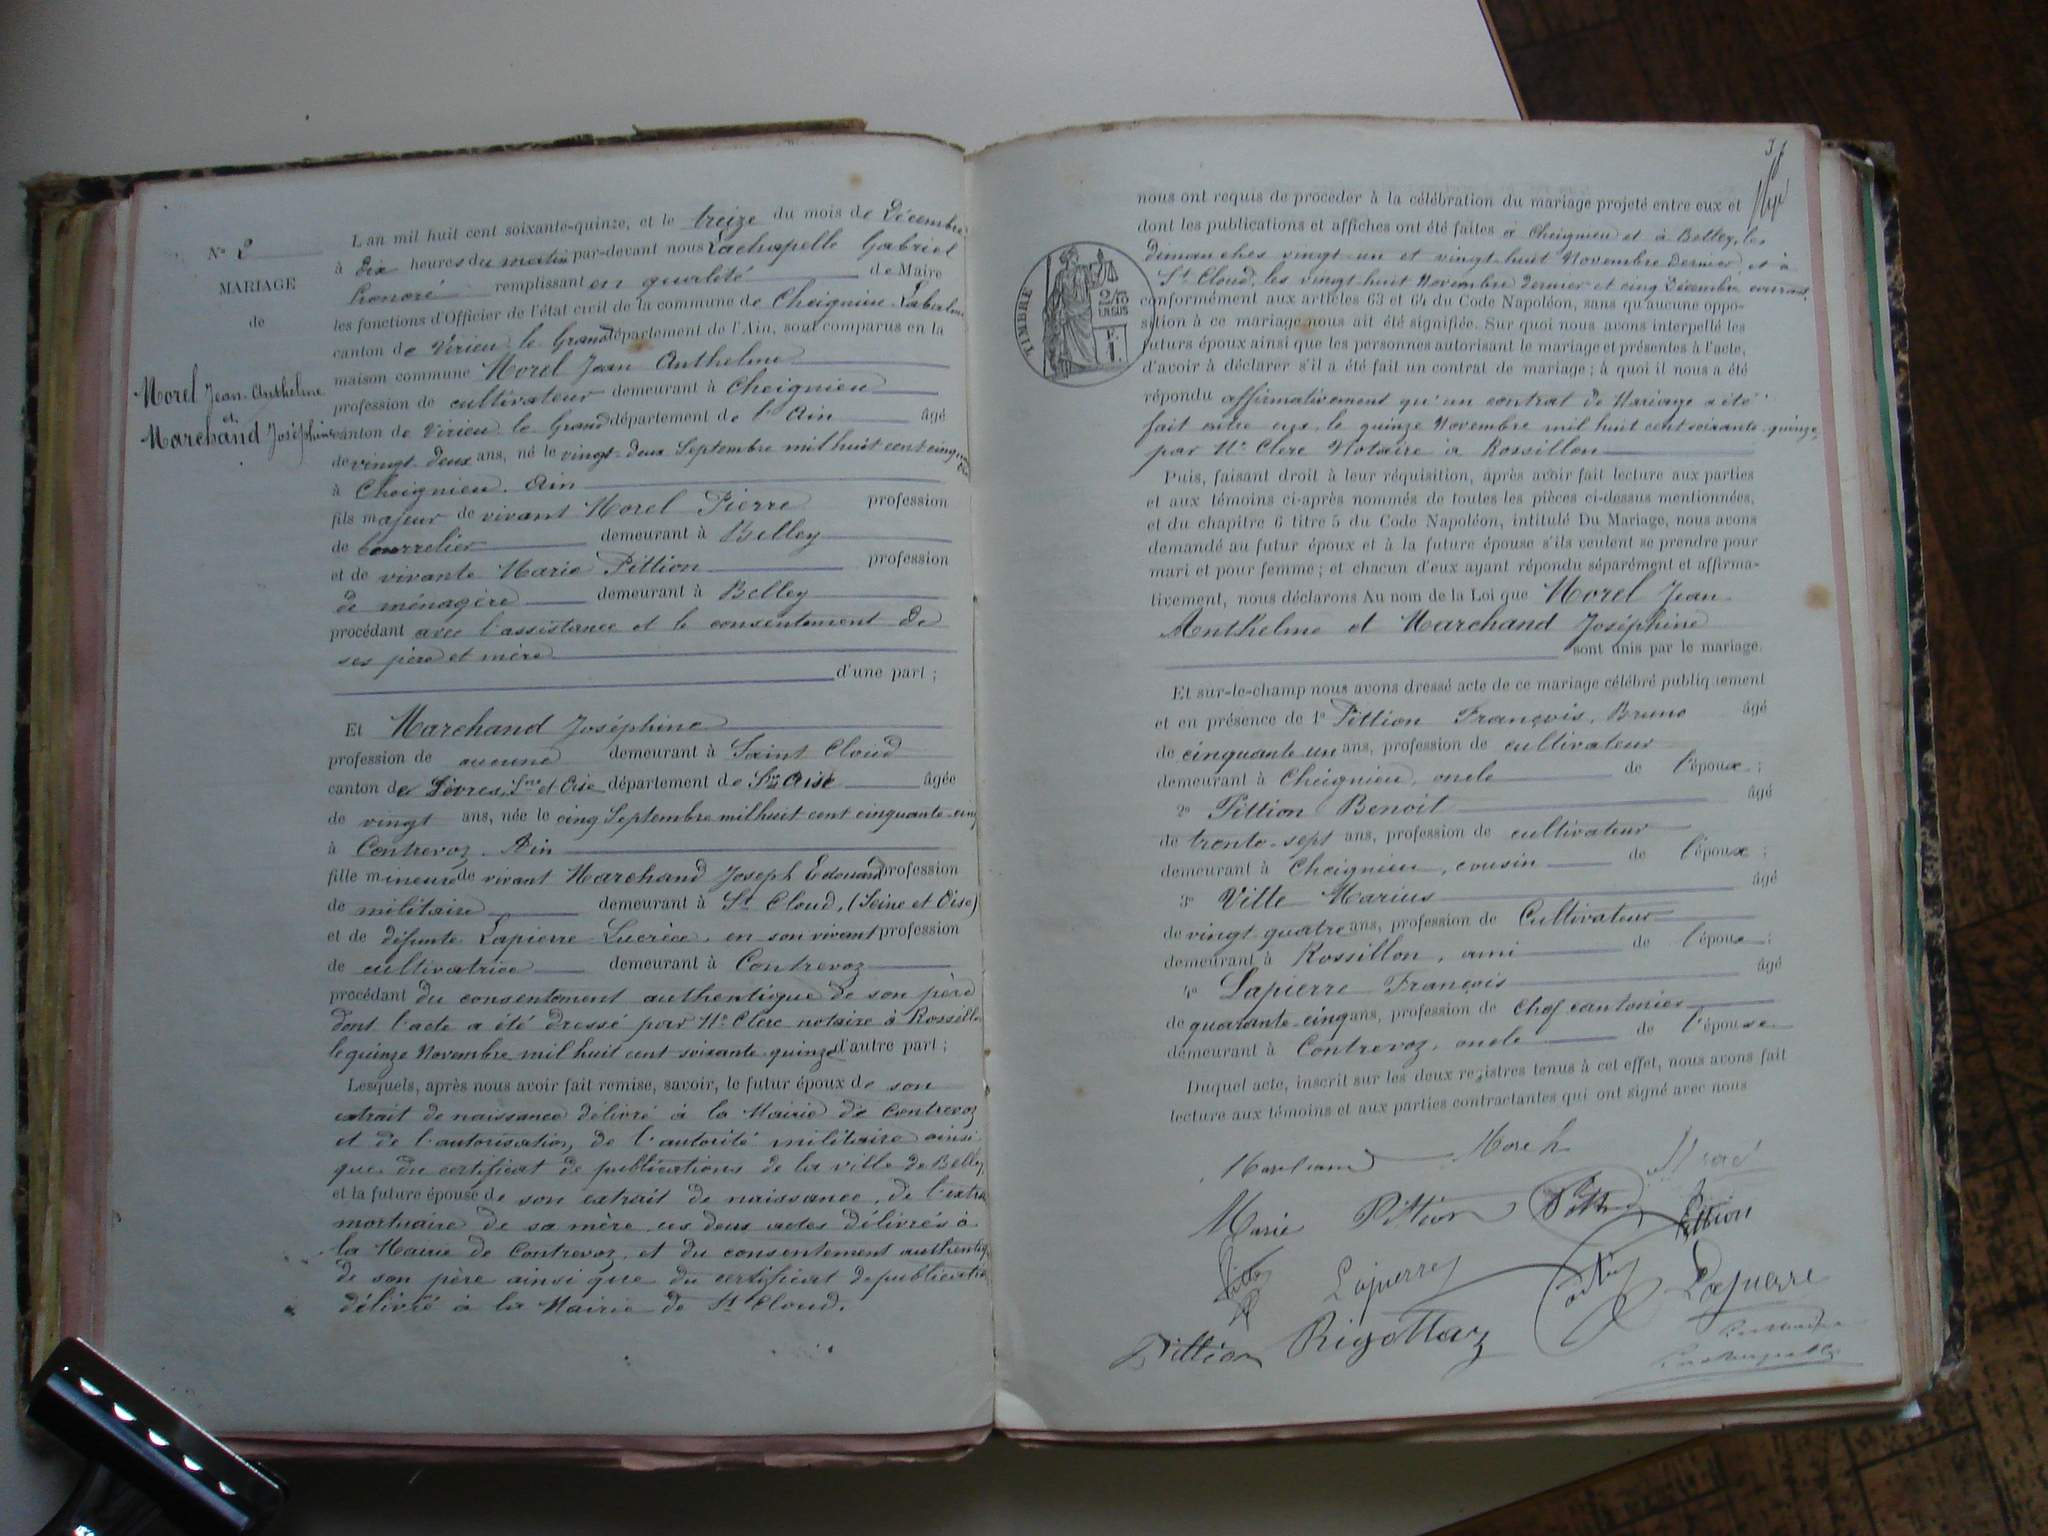 N° 2
MARIAGE
de
Morel Jean-Anthelme
et
Marchand Joséphine
L'an mil huit cent soixante-quinze, et le treize du mois de Décembre
à dix heures du matin par-devant nous Lachapelle Gabriel
honoré remplissant en qualité de Maire
les fonctions d'Officier de l'état civil de la commune de Cheignieu-Labalme
canton de Virieu le Grand département de l'Ain, sont comparus en la
maison commune Morel Jean Anthelme
profession de cultivateur demeurant à Cheignieu
canton de Virieu le Grand département de l'Ain âgé
de vingt-deux ans, né le vingt-deux Septembre mil huit cent
à Cheignieu. Ain
fils majeur de vivant Morel Pierre profession
de bourrelier demeurant à Belley
et de vivante Marie Pittion profession
de ménagère demeurant à Belley
procédant avec l'assistance et le consentement de
ses père et mère
d'une part ;
Et Marchand Joséphine
profession de aucune demeurant à Saint Cloud
canton de Sèvres, Sne et Oise département de Sne Oise âgée
de vingt ans, née le cinq Septembre mil huit cent cinquante-cinq
à Contrevoz. Ain
fille mineure de vivant Marchand Joseph Edouard profession
de militaire demeurant à St Cloud, (Seine et Oise)
et de défunte Lapierre Lucrèce, en son vivant profession
de cultivatrice demeurant à Contrevoz
procédant du consentement authentique de son père
dont l'acte a été dressé par Me Clerc notaire à Rossillon
le quinze Novembre mil huit cent soixante-quinze d'autre part ;
Lesquels, après nous avoir fait remise, savoir, le futur époux de son
extrait de naissance délivré à la Mairie de Contrevoz
et de l'autorisation, de l'autorité militaire ainsi
que du certificat de publications de la ville de Belley,
et la future épouse de son extrait de naissance, de l'extrait
mortuaire de sa mère ces deux actes délivrés à
la Mairie de Contrevoz, et du consentement authentique
de son père ainsi que du certificat de publication
délivré à la Mairie de St Cloud.
3
nous ont requis de procéder à la célébration du mariage projeté entre eux et
dont les publications et affiches ont été faites à Cheignieu et à Belley, les
dimanches vingt-un et vingt-huit Novembre dernier, et à
St Cloud, les vingt huit Novembre dernier et cinq Décembre courant,
conformément aux articles 63 et 64 du Code Napoléon, sans qu'aucune oppo-
sition à ce mariage nous ait été signifiée. Sur quoi nous avons interpellé les
futurs époux ainsi que les personnes autorisant le mariage et présentes à l'acte,
d'avoir à déclarer s'il a été fait un contrat de mariage ; à quoi il nous a été
répondu affirmativement qu'un contrat de Mariage a été
fait entre eux, le quinze Novembre mil huit cent soixante-quinze,
par Me Clerc Notaire à Rossillon
Puis, faisant droit à leur réquisition, après avoir fait lecture aux parties
et aux témoins ci-après nommés de toutes les pièces ci-dessus mentionnées,
et du chapitre 6 titre 5 du Code Napoléon, intitulé Du Mariage, nous avons
demandé au futur époux et à la future épouse s'ils veulent se prendre pour
mari et pour femme ; et chacun d'eux ayant répondu séparément et affirma-
tivement, nous déclarons Au nom de la Loi que Morel Jean
Anthelme et Marchand Joséphine
sont unis par le mariage.
Et sur-le-champ nous avons dressé acte de ce mariage célébré publiquement
et en présence de 1° Pittion François, Bruno âgé
de cinquante un ans, profession de cultivateur
demeurant à Cheignieu, oncle de l'époux ;
2° Pittion Benoit âgé
de trente-sept ans, profession de cultivateur
demeurant à Cheignieu, cousin de l'époux ;
3° Vitte Marius âgé
de vingt quatre ans, profession de Cultivateur
demeurant à Rossillon, ami de l'époux ;
4° Lapierre François âgé
de quarante-cinq ans, profession de chef cantonier
demeurant à Contrevoz, oncle de l'épouse
Duquel acte, inscrit sur les deux registres tenus à cet effet, nous avons fait
lecture aux témoins et aux parties contractantes qui ont signé avec nous
Marchand
Marie Pittion Pittion
Lapierre Lapierre
Pittion Rigottaz
TIMBRE